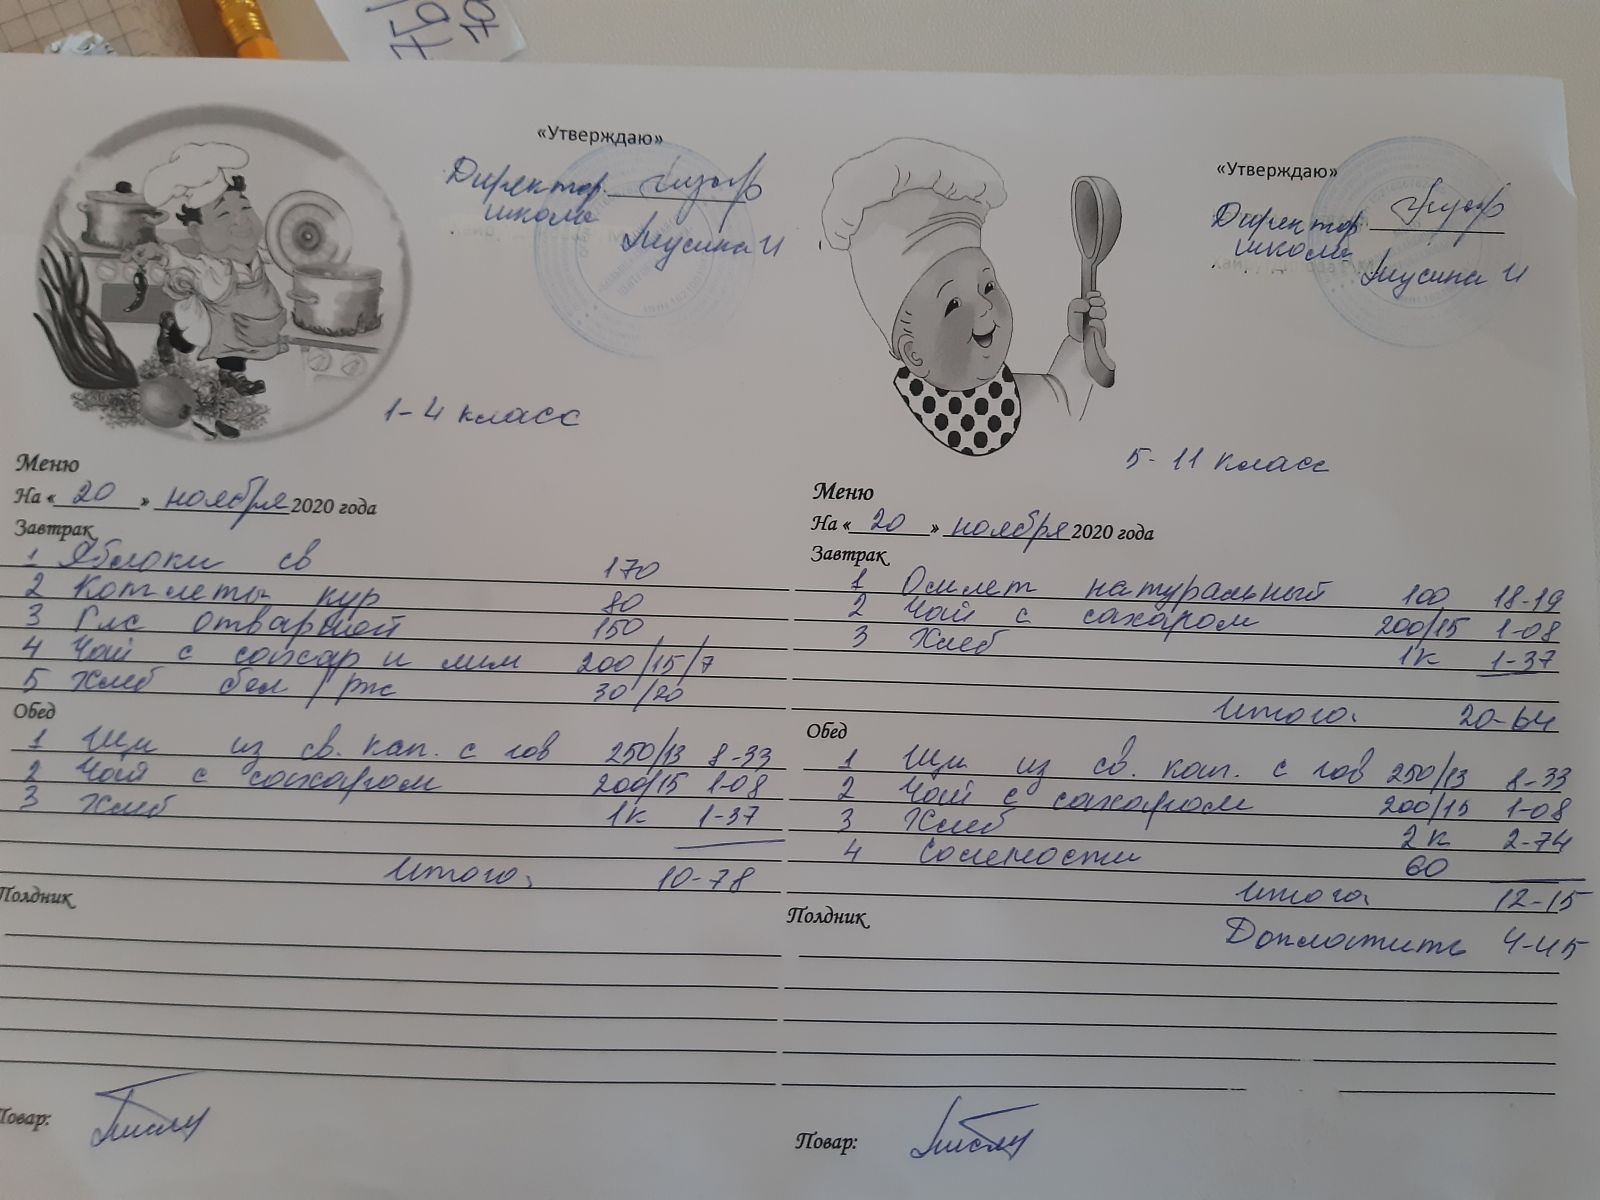 «Утверждаю»
Директор
школы
Мусина И
1-4 класс
Меню
На «20» ноября 2020 года
Завтрак
1 Яблоки св 170
2 Котлеты кур 80
3 Гпс отварной 150
4 Чай с сахар и лим 200/15/7
5 Хлеб бел/рж 30/20
Обед
1 Щи из св. кап. с гов 250/13 8-33
2 Чай с сахаром 200/15 1-08
3 Хлеб 1к 1-37
Итого: 10-78
Полдник
Повар:
«Утверждаю»
Директор
школы
Мусина И
5-11 класс
Меню
На «20» ноября 2020 года
Завтрак
1 Омлет натуральный 100 18-19
2 Чай с сахаром 200/15 1-08
3 Хлеб 1к 1-37
Итого: 20-64
Обед
1 Щи из св. кап. с гов 250/13 8-33
2 Чай с сахаром 200/15 1-08
3 Хлеб 2к 2-74
4 60
Итого: 12-15
Полдник
Доплатить 4-45
Повар: